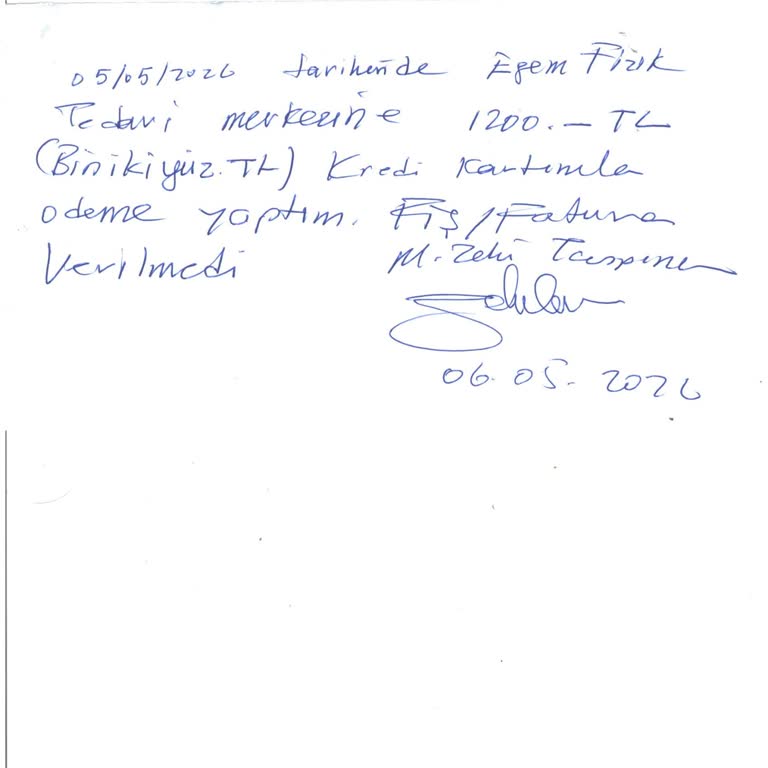 05/05/2026 tarihinde Egem Fizik
Tedavi merkezine 1200.- TL
(Binikiyüz.TL) Kredi Kartımla
ödeme yaptım. Fiş/Fatura
Verilmedi M. Zeki
06.05.2026